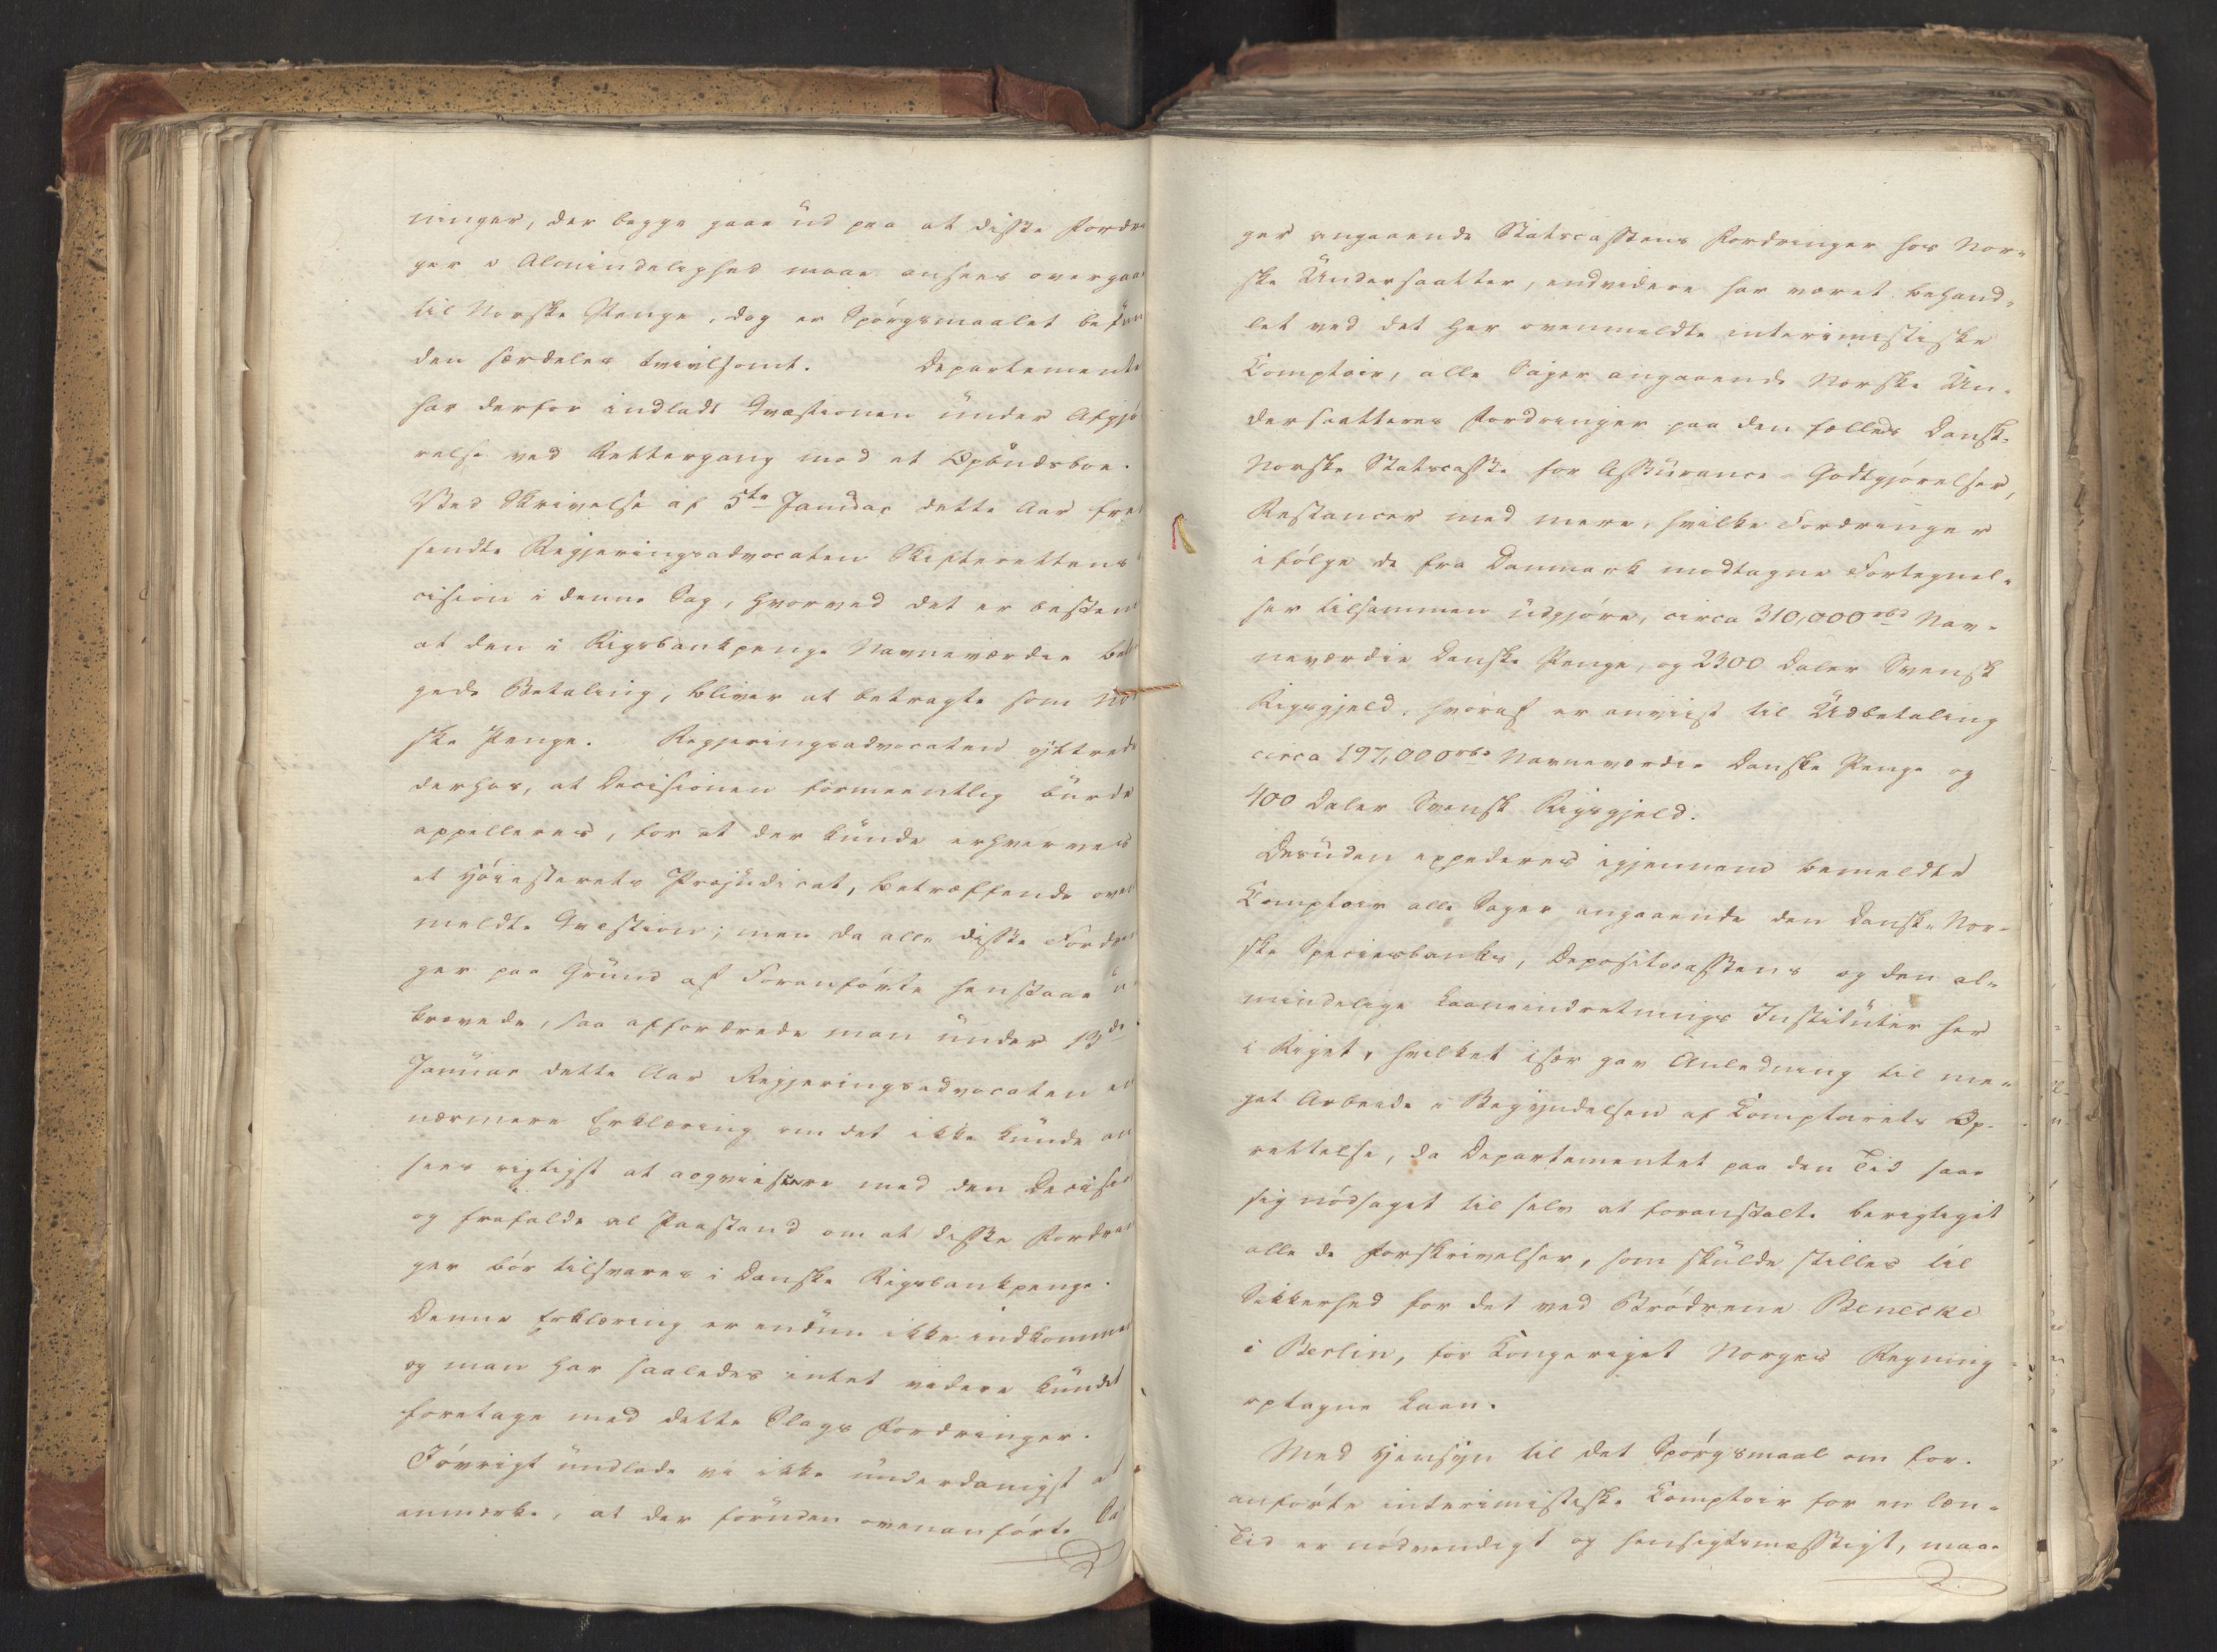 ninger, der begge gaae ud paa at disse Fordrin
ger i Almindelighed maae ansees overgaae
til Norske Penge, dog er Spørgsmaalet befun
den særdeles tvivlsomt. Departemente
har derfor indladt Qvæstionen under Afgjø
relse ved Rettergang mod et Opbudsboe.
Ved Skrivelse af 5te Januar dette Aar frem
sendte Regjeringsadvocaten Skifterettens
cision i denne Sag, hvorved det er bestem
at den i Rigsbankpenge Navneværdie
gede Betaling, bliver at betragte som Nor
ske Penge. Regjeringsadvocaten yttrede
derhos, at Decisionen formeentlig burde
appelleres, for at der kunde erhverves
et Høiesterets Præjudicat, betræffende oven
meldte Qvæstion; men da alle disse Fordrin
ger paa Grund af Foranførte henstaae
krævede, saa affordrede man under 13de
Januar dette Aar Regjeringsadvocaten en
nærmere Erklæring om det ikke kunde an
sees rigtigst at acqviescere med den Decision
og frafalde al Paastand om at disse Fordrin
ger bør tilsvares i Danske Rigsbankpenge.
Denne Erklæring er endnu ikke indkommet
og man har saaledes intet videre kundet
foretage med dette Slags Fordringer.
Iøvrigt undlade vi ikke underdanigst at
anmærke, at der foruden ovenanførte Sa
ger angaaende Statscassens Fordringer hos Nor-
ske Undersaatter, endvidere har været behand-
let ved det her ovenmeldte interimistiske
Comptoir, alle Sager angaaende Norske Un-
dersaatteres Fordringer paa den fælleds Dansk-
Norske Statscasse for Assurance-Godtgjørelser,
Restancer med mere, hvilke Fordringer
ifølge de fra Danmark modtagne Fortegnel-
ser tilsammen udgjøre, circa 310,000 rbd Nav-
neværdie Danske Penge, og 2300 Daler Svensk
Rigsgjeld, hvoraf er anviist til Udbetaling
circa 197,000 rbd Navneværdie Danske Penge og
400 Daler Svensk Rigsgjeld.
Desuden expederes igjennem bemeldte
Comptoir alle Sager angaaende den Danske-Nor-
ske Speciesbanks, Depositocassens og den al-
mindelige Laaneindretnings Instituter her
i Riget, hvilket især gav Anledning til me-
get Arbeide i Begyndelsen af Comptoirets Op-
rettelse, da Departementet paa den Tid saae
sig nødsaget til selv at foranstalte berigtiget
alle de Forskrivelser, som skulde stilles til
Sikkerhed for det ved Brødrene Benecke
i Berlin, for Kongeriget Norges Regning
optagne Laan.
Med Hensyn til det Spørgsmaal om for-
anførte interimistiske Comptoir for en læn-
Tid er nødvendigt og hensigtsmæssigt, maae